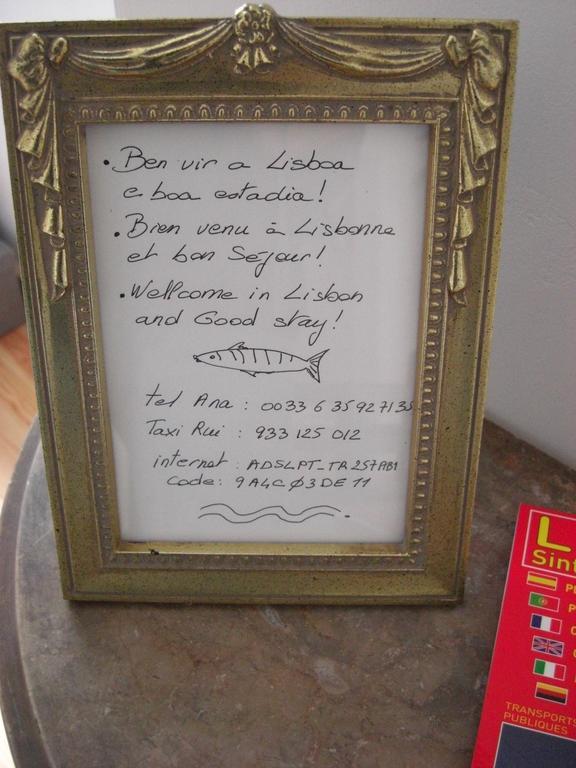 • Ben vir a Lisboa
e boa estadia!
• Bien venu à Lisbonne
et bon Séjour!
• Wellcome in Lisbon
and Good stay!
tel Ana : 0033 6 35 92 71 38
Taxi Rui : 933 125 012
internet : ADSLPT_TR257AB1
Code : 9A4CØ3DE11
L
Sint
TRANSPORTS
PUBLIQUES